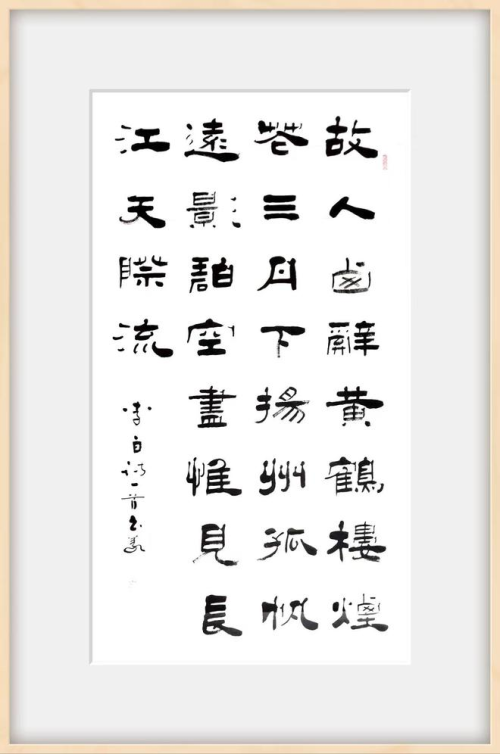 故人卥辭黄鶴樓煙
花三月下揚州孤帆
遠影碧空盡惟見長
江天際流
李白詩一首